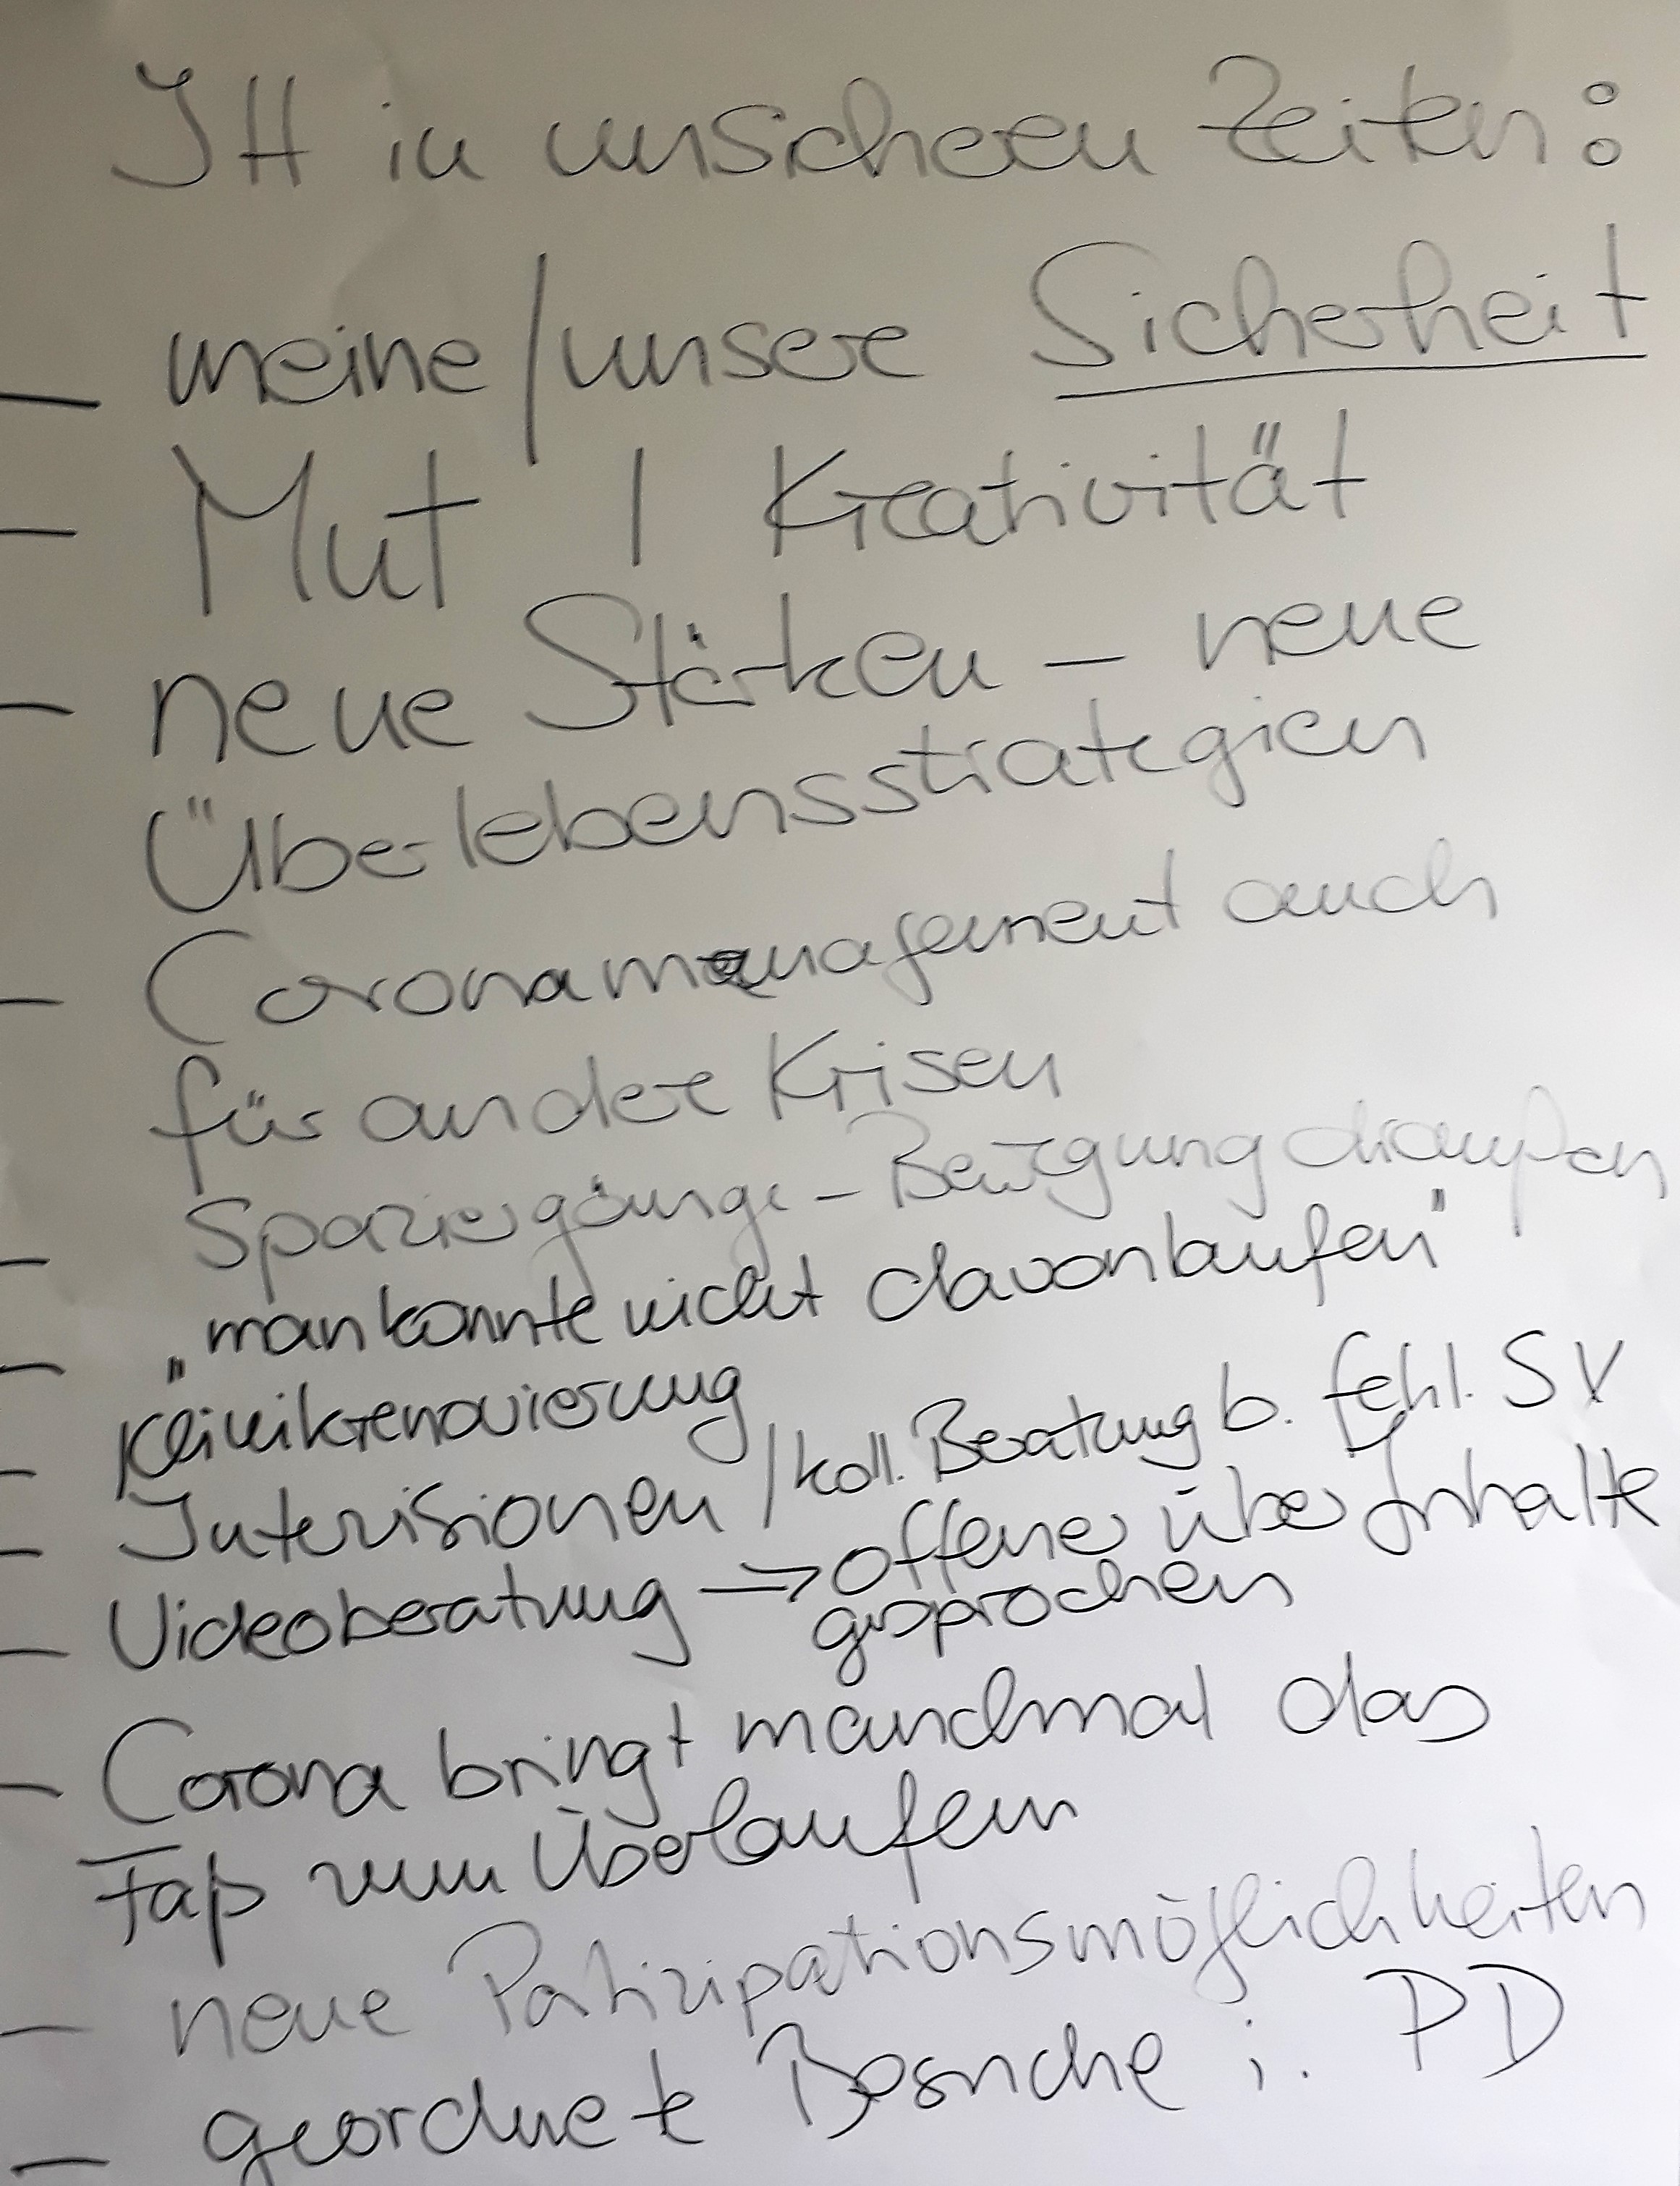 JH in unsicheren Zeiten:
– meine/unsere Sicherheit
– Mut / Kreativität
– neue Stärken – neue
Überlebensstrategien
– Coronamanagement auch
für andere Krisen
– Spaziergänge – Bewegung draußen
– "man konnte nicht davonlaufen"
– Klinikrenovierung
– Intervisionen / koll. Beratung b. fehl. SV
– Videoberatung → offener über Inhalte
gesprochen
– Corona bringt manchmal das
Faß zum Überlaufen
– neue Patizipationsmöglichkeiten
– geordnete Besuche i. PD